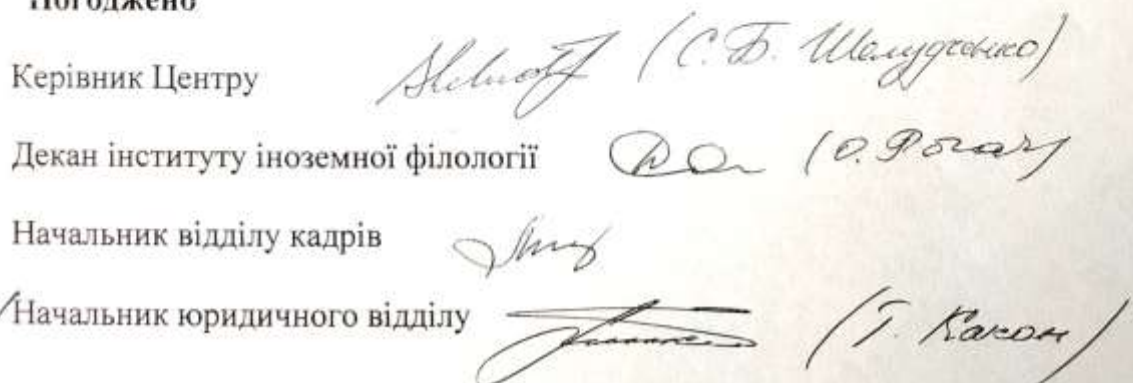 Погоджено
Керівник Центру (С.Б. Шелудченко)
Декан інституту іноземної філології (О. Рогач)
Начальник відділу кадрів
Начальник юридичного відділу (Т. Какон)